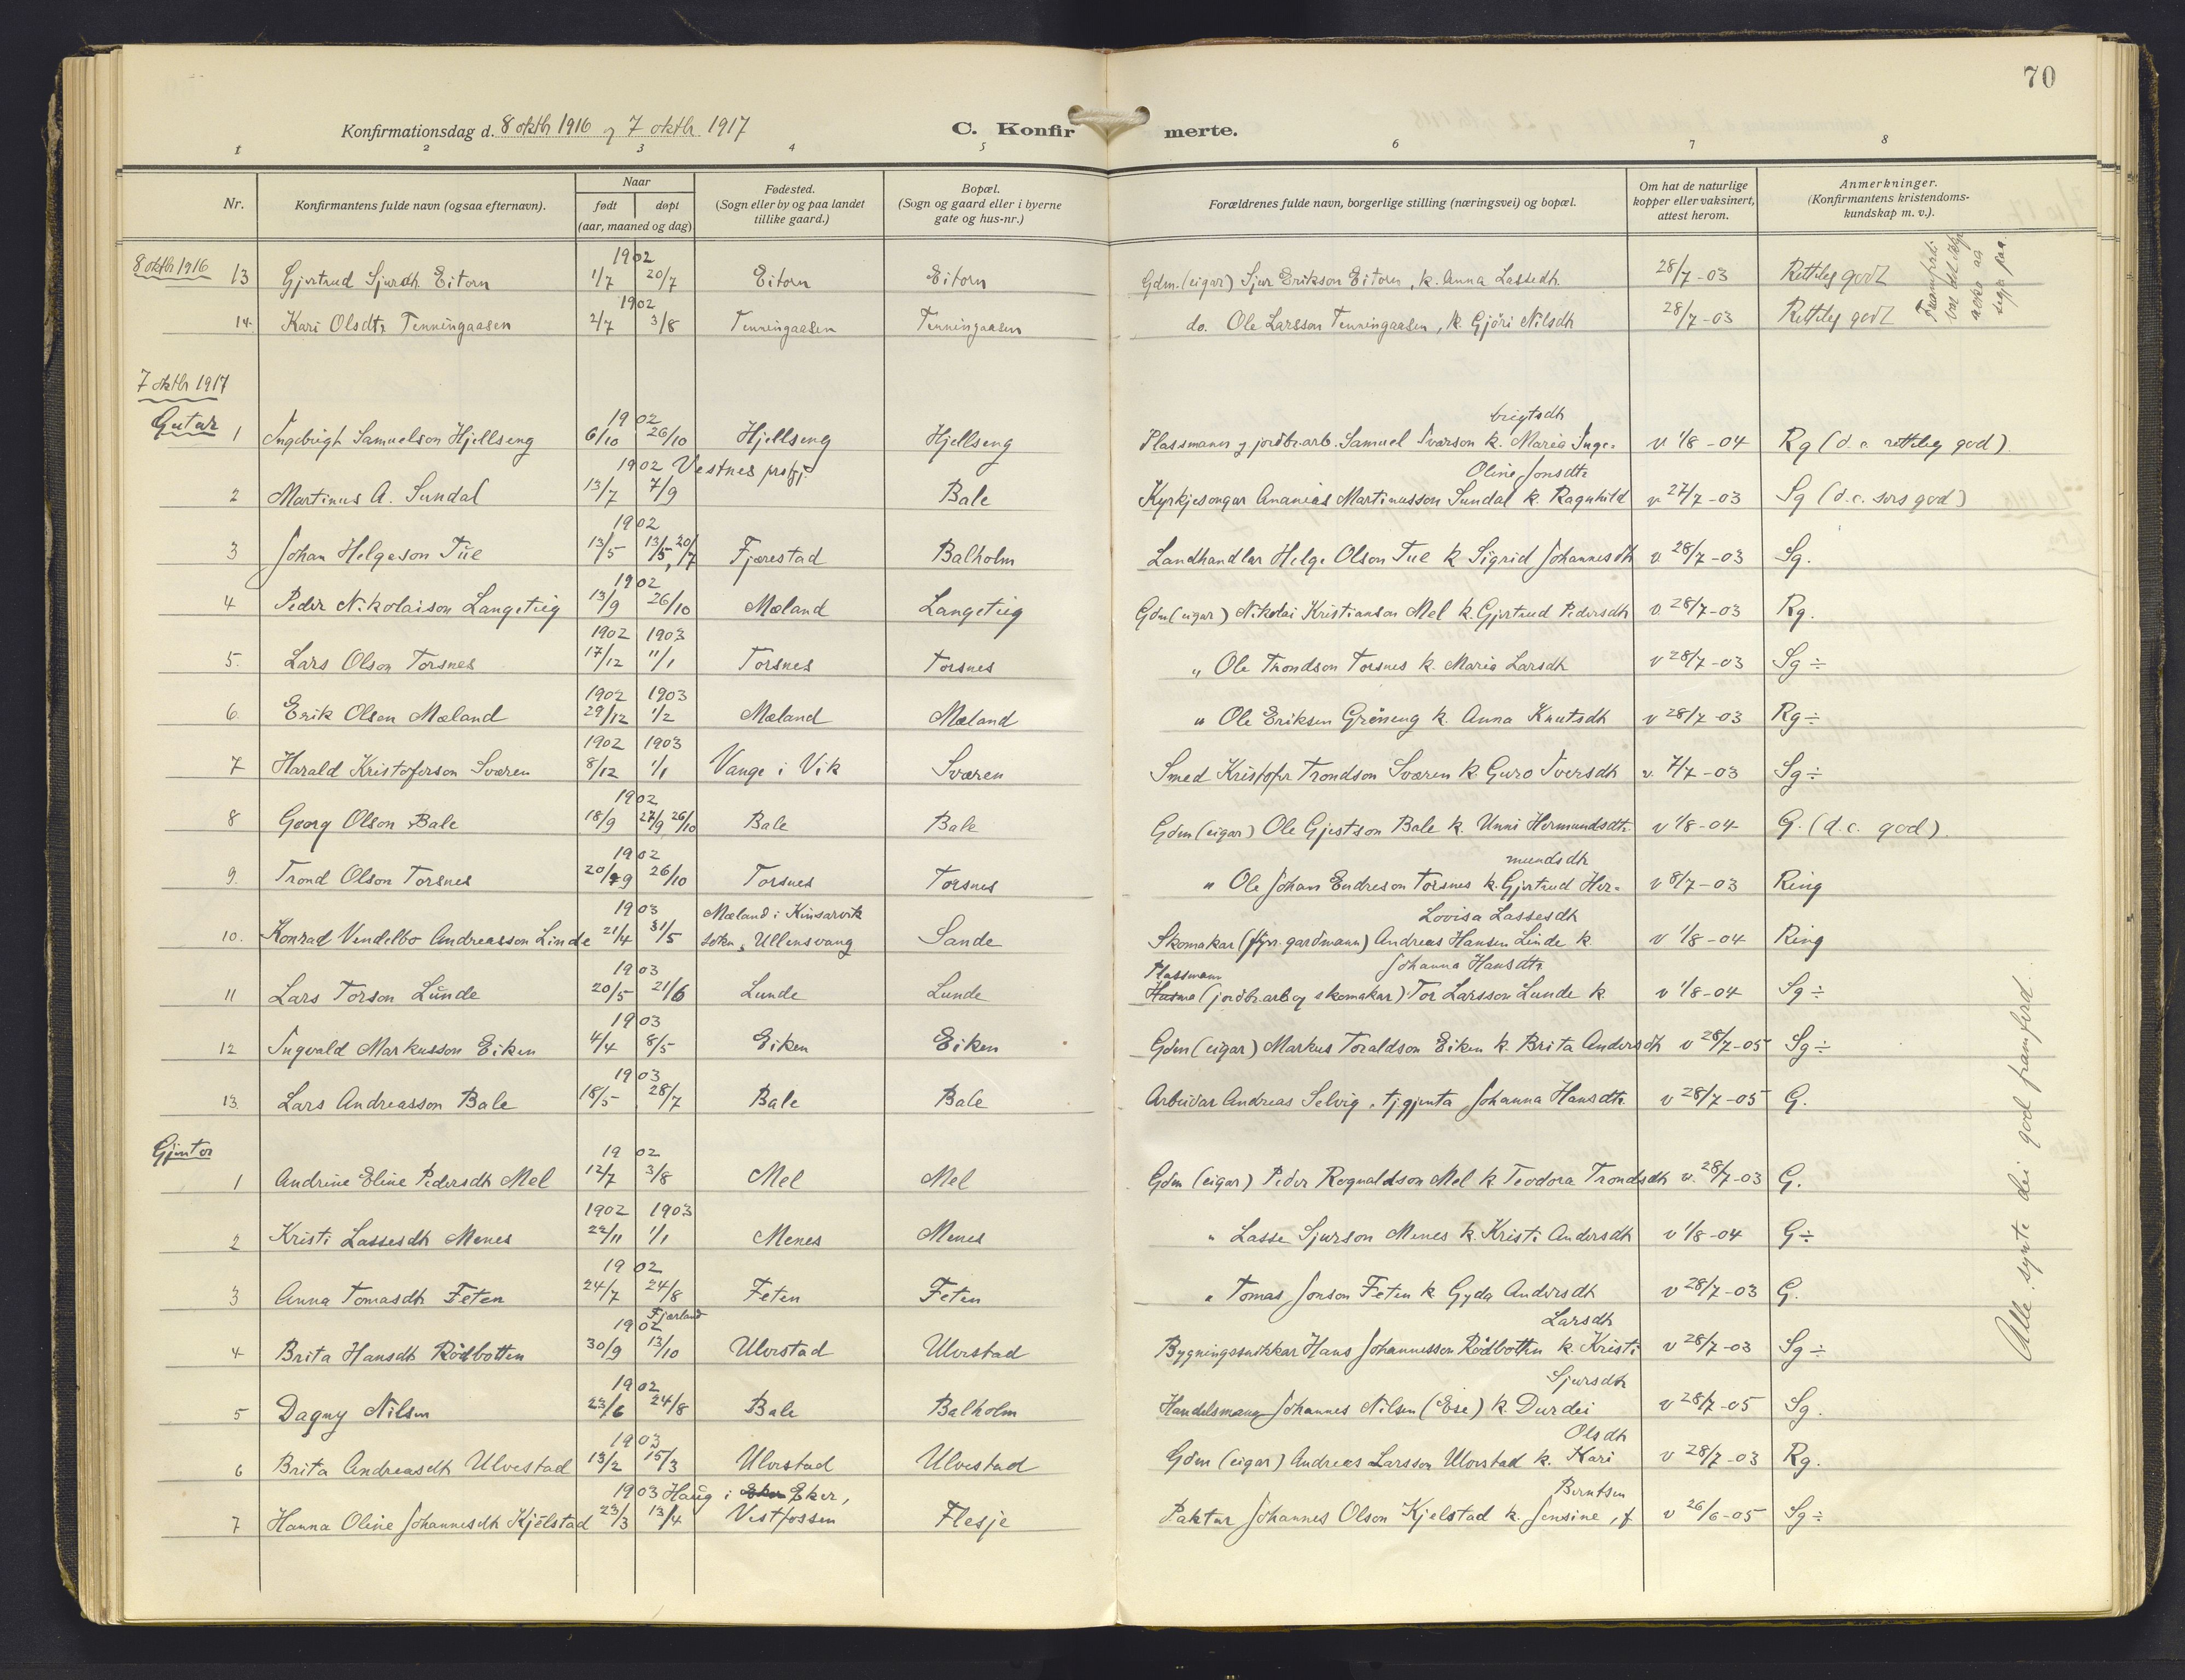 70
Konfirmationsdag d. 8 oktb 1916 og 7 oktbr 1917
C. Konfirmerte.
1 2 3 4 5 6 7 8
Nr. Konfirmantens fulde navn (ogsaa efternavn). Naar født døpt (aar, maaned og dag) Fødested. (Sogn eller by og paa landet tillike gaard.) Bopæl. (Sogn og gaard eller i byerne gate og hus-nr.) Forældrenes fulde navn, borgerlige stilling (næringsvei) og bopæl. Om hat de naturlige kopper eller vaksinert, attest herom. Anmerkninger. (Konfirmantens kristendomskundskap m. v.).
8 oktbr 1916
1902
13 Gjertrud Sjursdtr. Eitorn 1/7 20/7 Eitorn Eitorn Gdm. (eigar) Sjur Erikson Eitorn, k. Anna Lassedtr. 28/7-03 Rettleg godt
1902
14. Kari Olsdtr. Tenningaasen 2/7 3/8 Tenningaasen Tenningaasen do. Ole Larsson Tenningaasen, k. Gjöri Nilsdtr 28/7-03 Rettleg godt
7 oktbr 1917
Gutar
1902 brigtsdtr
1 Ingebrigt Samuelson Hjellseng 6/10 26/10 Hjellseng Hjellseng Plassmann og jordbr.arb. Samuel Ivarson k. Maria Inge- v 1/8-04 Rg (d.e. rettleg god)
1902 Vestnes prstgj. Oline Jonsdtr
2 Martinus A. Sundal 13/7 7/9 Bale Kyrkjesongar Ananias Martinusson Sundal k. Ragnhild v. 27/7-03 Sg (d.e. sers god)
1902
3 Johan Helgeson Tue 13/5 13/5, 20/7 Fjærestad Balholm Landhandlar Helge Olson Tue k Sigrid Johannesdtr v. 28/7-03 Sg.
1902
4 Peder Nikolaison Langeteig 13/9 26/10 Mæland Langeteig Gdm (eigar) Nikolai Kristianson Mel k. Gjertrud Pedersdtr v. 28/7-03 Rg.
1902 1903
5. Lars Olson Torsnes 17/12 11/1 Torsnes Torsnes " Ole Trondson Torsnes k. Maria Larsdtr v 28/7-03 Sg ÷
1902 1903
6. Erik Olsen Mæland 29/12 1/2 Mæland Mæland " Ole Eriksen Gröneng k. Anna Knutsdtr v 28/7-03 Rg ÷
1902 1903
7 Harald Kristoferson Sværen 8/12 1/1 Vange i Vik Sværen Smed Kristofer Trondson Sværen k. Guro Iversdtr v. 7/7-03 Sg ÷
1902
8 Georg Olson Bale 18/9 27/9 26/10 Bale Bale Gdm (eigar) Ole Gjestson Bale k. Unni Hermundsdtr. v 1/8-04 G. (d.e. god)
1902 mundsdtr
9. Trond Olson Torsnes 20/9 26/10 Torsnes Torsnes " Ole Johan Endreson Torsnes k. Gjertrud Her- v 8/7-03 Ring
1903 Mæland i Kinsarvik Lovisa Lassesdtr
10. Konrad Vendelbo Andreasson Linde 21/4 31/5 sokn, Ullensvang Sande Skomakar (fyrr. gardmann) Andreas Hansen Linde k. v 1/8-04 Ring
1903 Plassmann Johanna Hansdtr.
11 Lars Torson Lunde 20/5 21/6 Lunde Lunde Husma (jordbr.arb. og skomakar) Tor Larsson Lunde k. v 1/8-04 Sg ÷
1903
12 Ingvald Markusson Eiken 4/4 8/5 Eiken Eiken Gdm (eigar) Markus Toraldson Eiken k. Brita Andersdtr v 28/7-05 Sg ÷
1903
13. Lars Andreasson Bale 18/5 28/7 Bale Bale Arbeidar Andreas Selvig, tj.gjenta Johanna Hansdtr. v 28/7-05 G.
Gjentor
1902
1 Andrine Eline Pedersdtr Mel 12/7 3/8 Mel Mel Gdm (eigar) Peder Rognaldson Mel k. Teodora Trondsdtr v. 28/7-03 G.
1902 1903
2 Kristi Lassesdtr Menes 22/11 1/1 Menes Menes " Lasse Sjurson Menes k. Kristi Andersdtr v 1/8-04 G ÷
1902
3 Anna Tomasdtr Feten 24/7 24/8 Feten Feten " Tomas Jonson Feten k Gyda Andersdtr v 28/7-03 G.
1902 Fjærland Larsdtr
4 Brita Hansdtr Rödbotten 30/9 13/10 Ulvestad Ulvestad Bygningssnikkar Hans Johannesson Rödbotten k. Kristi v 28/7-03 Sg ÷
1902 Sjursdtr
5 Dagny Nilsen 23/6 24/8 Bale Balholm Handelsmann Johannes Nilsen (Ese) k. Durdei v 28/7-05 Sg.
1903 Olsdtr
6 Brita Andreasdtr Ulvestad 13/2 15/3 Ulvestad Ulvestad Gdm (eigar) Andreas Larsson Ulvestad k. Kari v 28/7-03 Rg.
1903 Haug i Eker, Berntsen
7 Hanna Oline Johannesdtr Kjélstad 23/3 13/4 Vestfossen Flesje Paktar Johannes Olson Kjelstad k. Jensine, f. v 26/6-05 Sg ÷
Alle synte dei god framferd